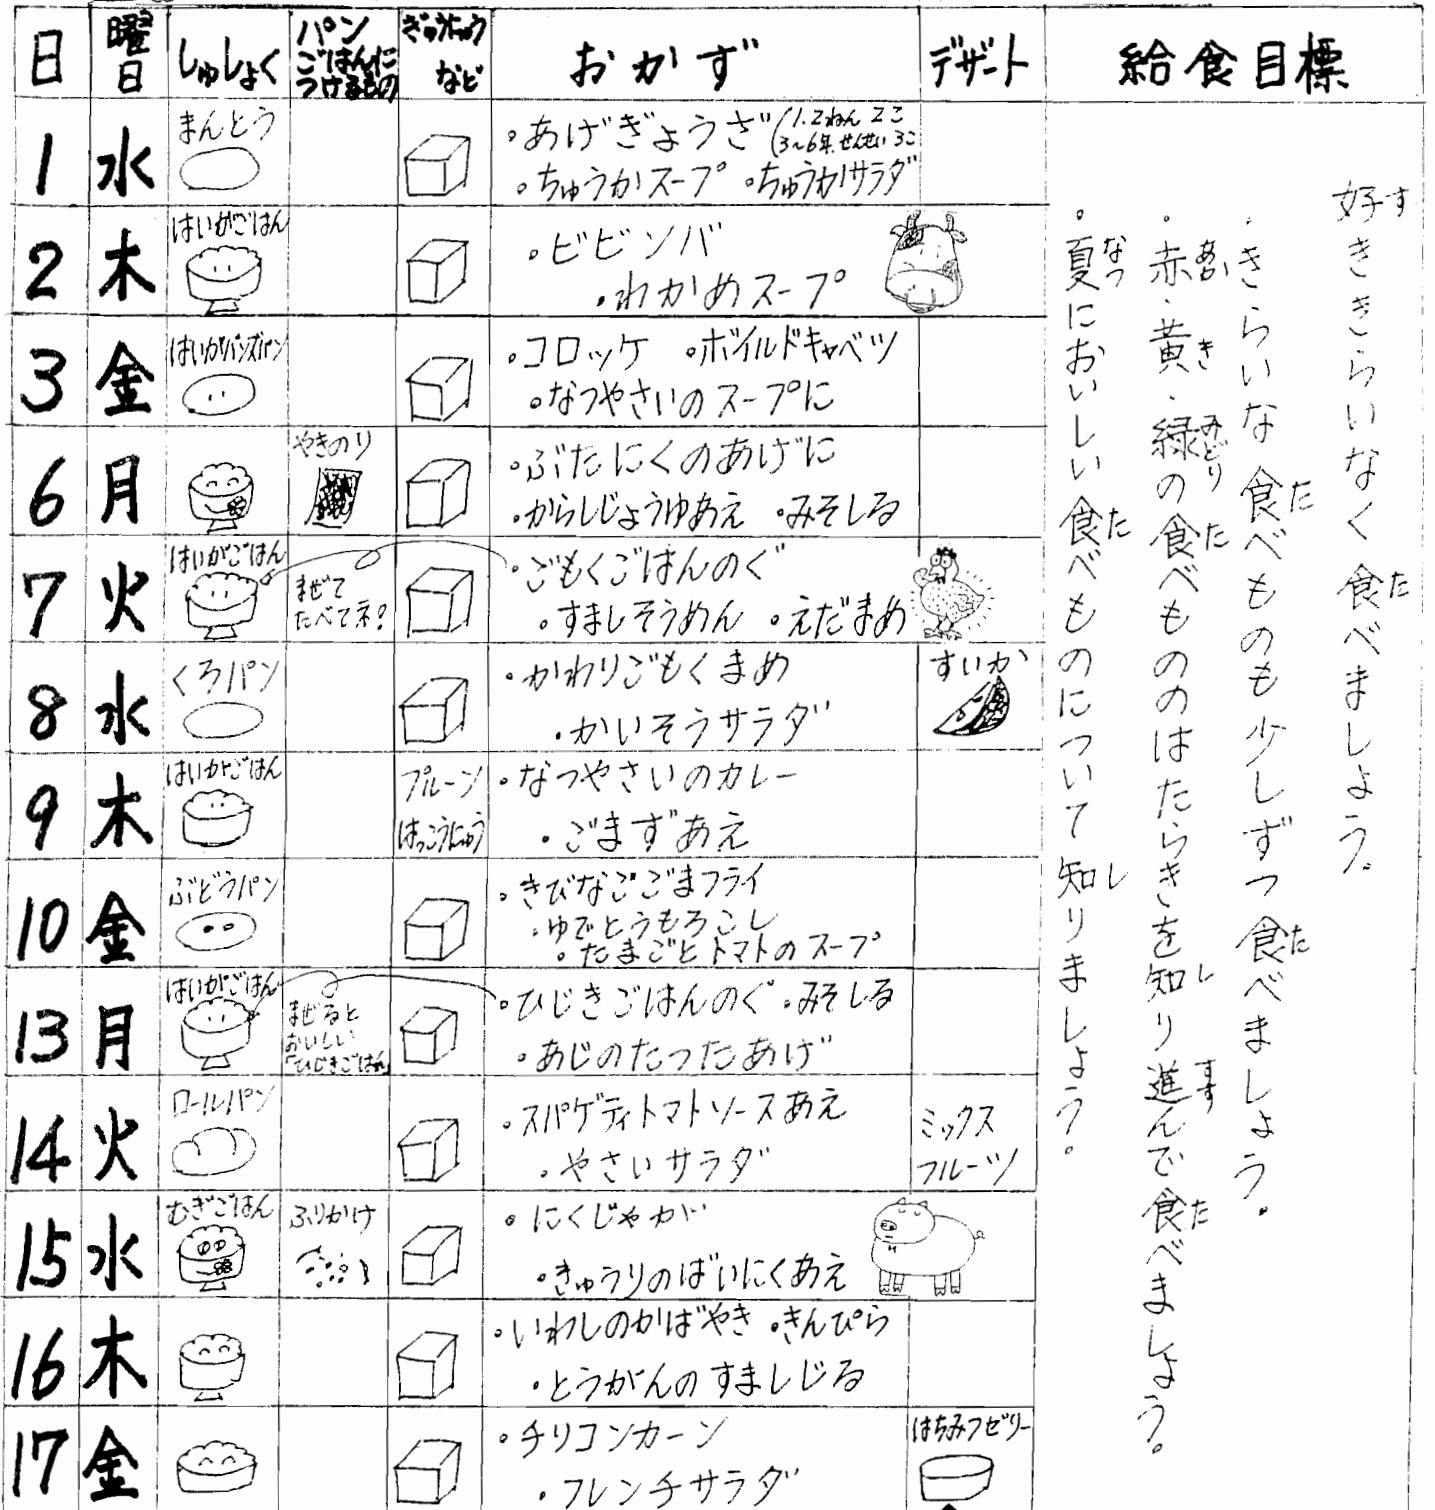 日 曜日 しゅしょく パン ごはんに つけるもの ぎゅうにゅう など おかず デザート 給食目標
1 水 まんとう ・あげぎょうざ(1.2ねん 2こ 3～6年.せんせい 3こ
・ちゅうかスープ ・ちゅうかサラダ
2 木 はいがごはん ・ビビンバ
・わかめスープ
3 金 はいがバンズパン ・コロッケ ・ボイルドキャベツ
・なつやさいのスープに
6 月 やきのり ・ぶたにくのあげに
・からしじょうゆあえ ・みそしる
7 火 はいがごはん まぜて たべてネ! ・ごもくごはんのぐ
・すましそうめん ・えだまめ
8 水 くろパン ・かわりごもくまめ すいか
・かいそうサラダ
9 木 はいがごはん プルーン はっこうにゅう ・なつやさいのカレー
・ごまずあえ
10 金 ぶどうパン ・きびなごごまフライ
・ゆでとうもろこし
・たまごとトマトのスープ
13 月 はいがごはん まぜると おいしい 「ひじきごはん」 ・ひじきごはんのぐ ・みそしる
・あじのたつたあげ
14 火 ロールパン ・スパゲティトマトソースあえ ミックス
・やさいサラダ フルーツ
15 水 むぎごはん ふりかけ ・にくじゃが
・きゅうりのばいにくあえ
16 木 ・いわしのかばやき ・きんぴら
・とうがんのすましじる
17 金 ・チリコンカーン はちみつゼリー
・フレンチサラダ
好ききらいなく食べましょう。
・きらいな食べものも少しずつ食べましょう。
・赤・黄・緑の食べもののはたらきを知り進んで食べましょう。
・夏においしい食べものについて知りましょう。